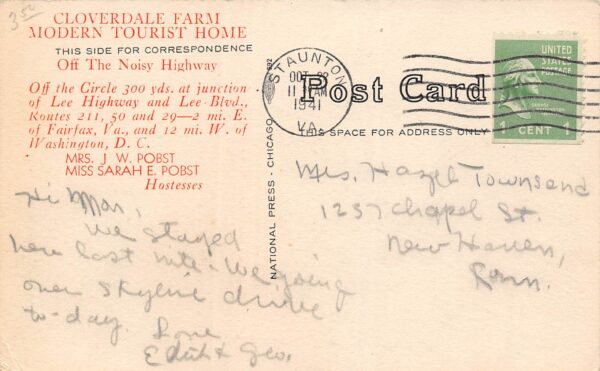 3.50
CLOVERDALE FARM
MODERN TOURIST HOME
THIS SIDE FOR CORRESPONDENCE
Off The Noisy Highway
Off the Circle 300 yds. at junction
of Lee Highway and Lee Blvd.,
Routes 211, 50 and 29—2 mi. E.
of Fairfax, Va., and 12 mi. W. of
Washington, D. C.
MRS. J. W. POBST
MISS SARAH E. POBST
Hostesses
Hi Mom,
We stayed
here last nite - We going
over skyline drive
to-day.
Love
Edith & Geo.
NATIONAL PRESS - CHICAGO
STAUNTON
OCT 22
11 AM
1941
VA.
Post Card
THIS SPACE FOR ADDRESS ONLY
UNITED
STATES
POSTAGE
1 CENT 1
Mrs. Hazel Townsend
1237 Chapel St.
New Haven,
Conn.